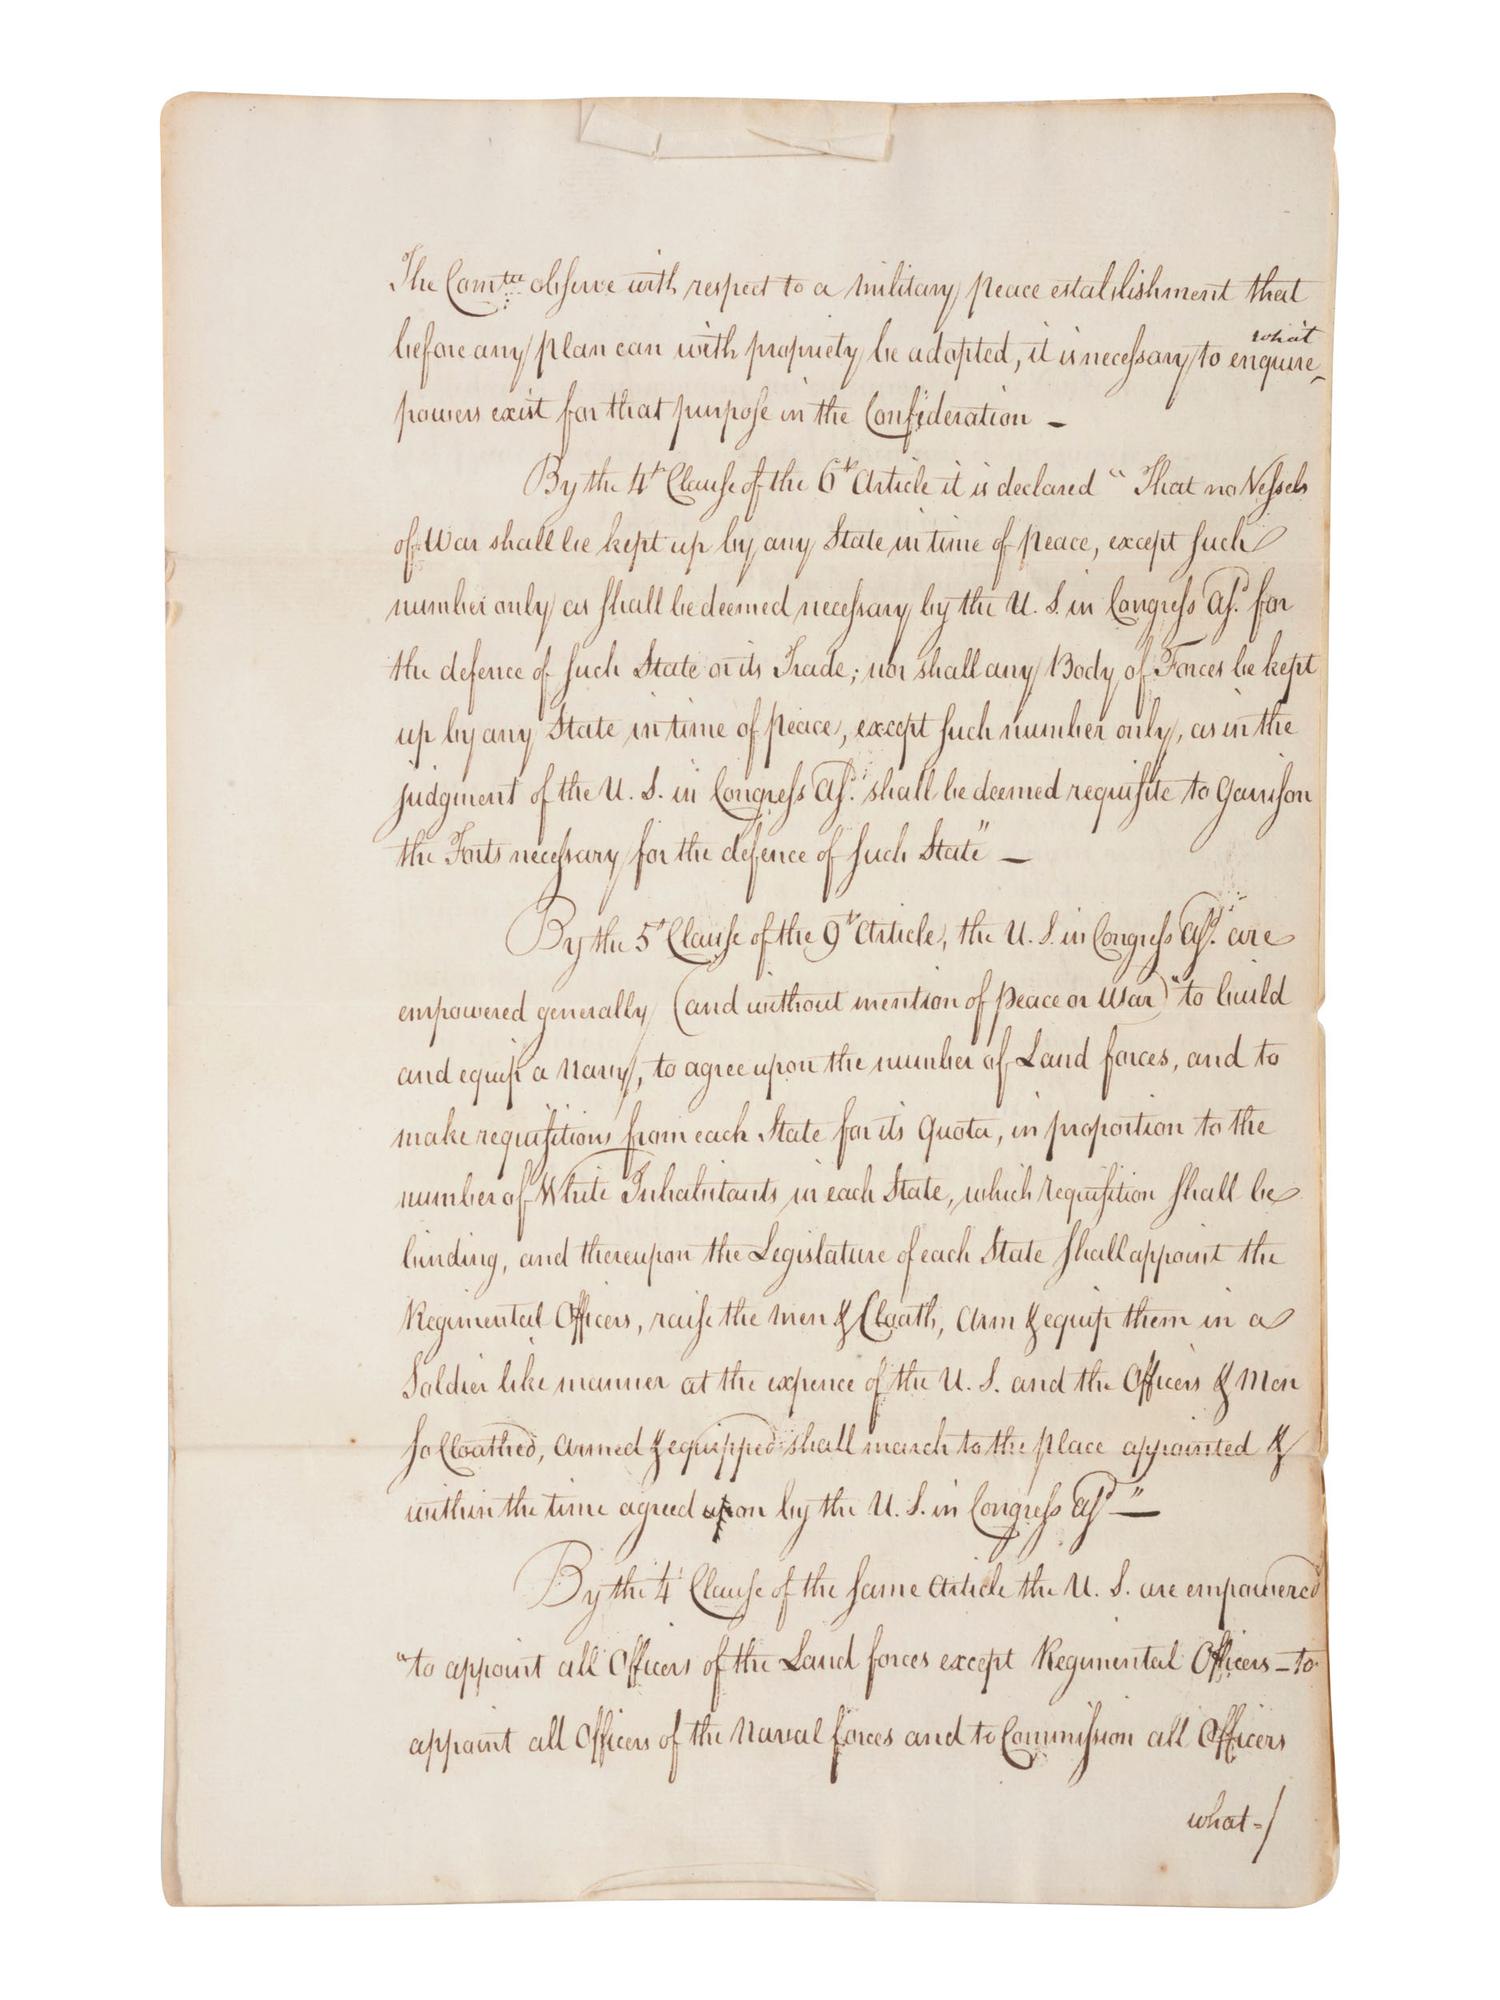 The Com.tee observe with respect to a military peace establishment that
before any plan can with propriety be adopted, it is necessary to enquire what
powers exist for that purpose in the Confederation –
By the 4th Clause of the 6th Article it is declared "That no Vessels
of War shall be kept up by any State in time of peace, except such
number only as shall be deemed necessary by the U. S. in Congress Assd. for
the defence of such State or its Trade; nor shall any Body of Forces be kept
up by any State in time of peace, except such number only, as in the
judgment of the U. S. in Congress Assd. shall be deemed requisite to Garrison
the Forts necessary for the defence of such State" –
By the 5t Clause of the 9t Article, the U. S. in Congress Assd. are
empowered generally (and without mention of peace or War) "to build
and equip a Navy, to agree upon the number of Land forces, and to
make requisitions from each State for its Quota, in proportion to the
number of White Inhabitants in each State, which requisition shall be
binding, and thereupon the Legislature of each State shall appoint the
Regimental Officers, raise the men & Cloath, Arm & equip them in a
Soldier like manner at the expence of the U. S. and the Officers & Men
so Cloathed, Armed & equipped shall march to the place appointed &
within the time agreed upon by the U. S. in Congress Assd" –
By the 4t Clause of the same Article the U. S. are empowered
"to appoint all Officers of the Land forces except Regimental Officers – to
appoint all Officers of the Naval forces and to Commission all Officers
what - /